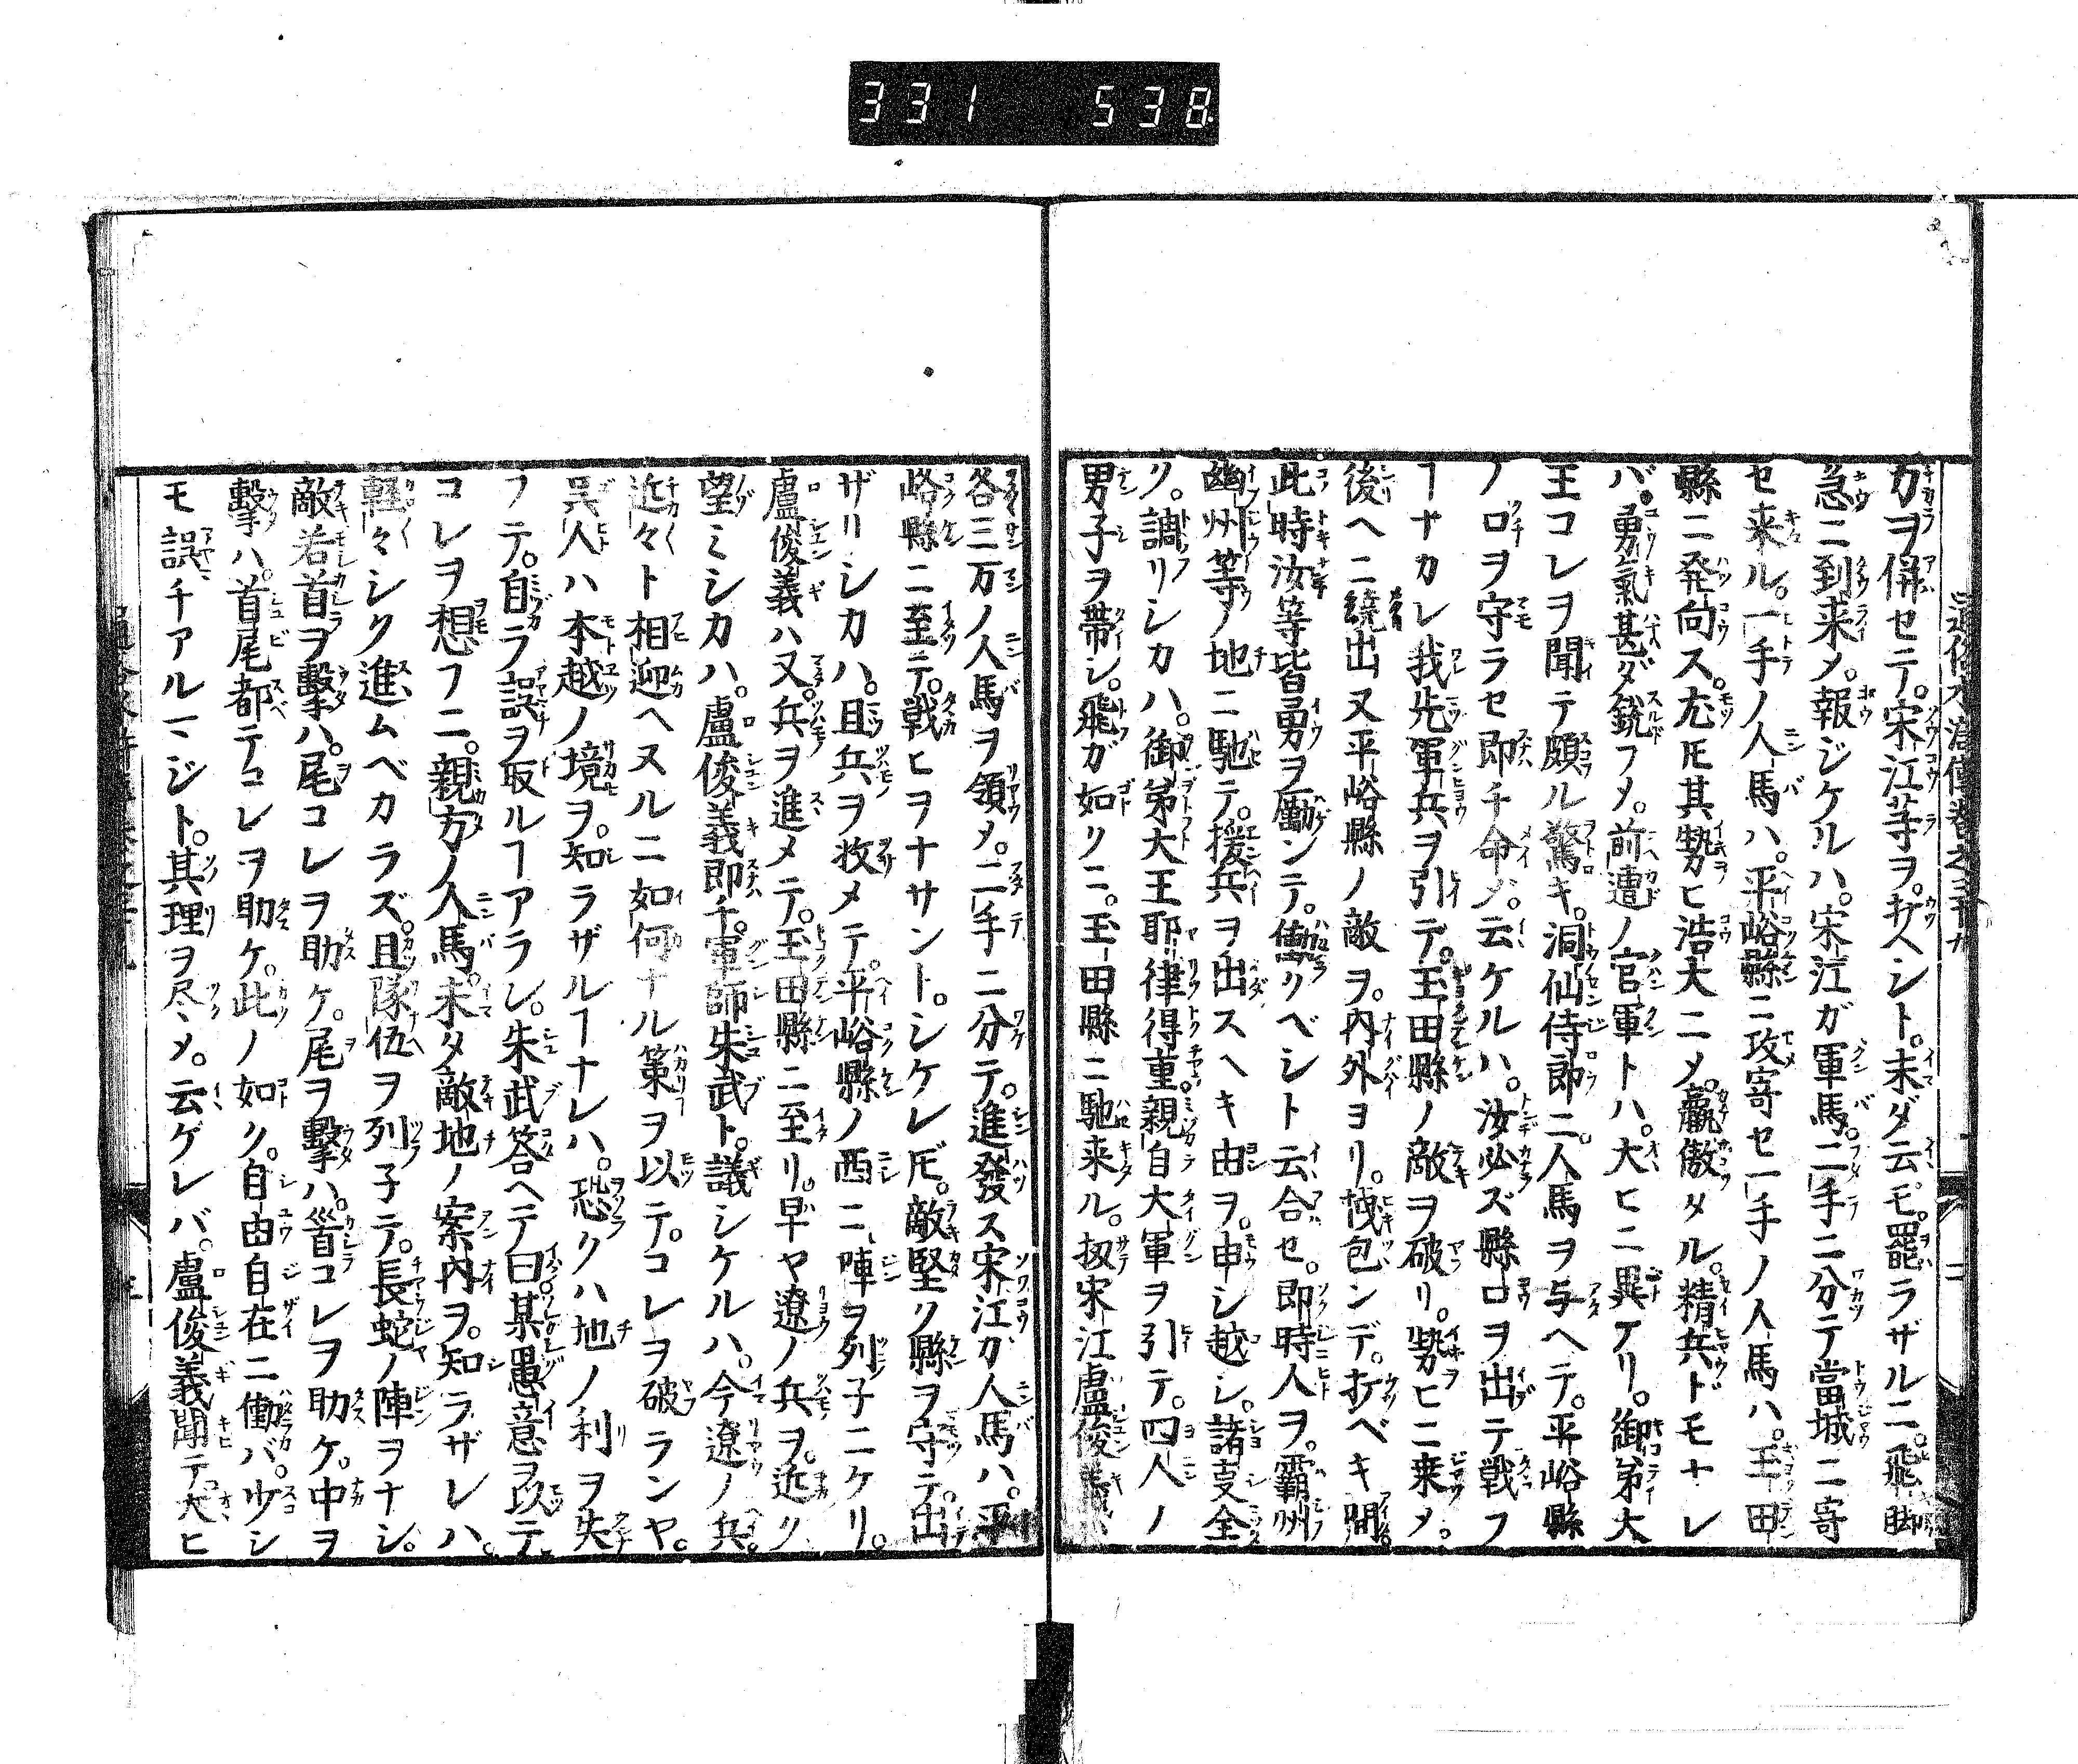 331 538
力ヲ併セテ。宋江等ヲ。打ヘシト。未ダ云モ。罷ラザルニ。飛脚
急ニ到来〆。報ジケルハ。宋江ガ軍馬。二手ニ分テ當城ニ寄
セ来ル。一手ノ人馬ハ。平峪縣ニ攻寄セ一手ノ人馬ハ。玉田
縣ニ発向ス。尤𪜈其勢ヒ浩大ニ〆。驘傲タル。精兵トモナレ
バ。勇氣甚ダ銳フ〆。前遭ノ官軍トハ。大ヒニ異ナリ。御弟大
王コレヲ聞テ頗ル驚キ。洞仙侍郎ニ。人馬ヲ与ヘテ。平峪縣
ノ口ヲ守ラセ即チ命〆。云ケルハ。汝必ズ縣口ヲ出テ戦フ
ヿナカレ我先軍兵ヲ引テ。玉田縣ノ敵ヲ破リ。勢ヒニ乗〆。
後ヘニ繞出又平峪縣ノ敵ヲ。内外ヨリ。拽包ンデ。打ベキ間
此時汝等皆勇ヲ勵ンテ。働クベシト云合セ。即時人ヲ。霸州
幽州等ノ地ニ馳テ。援兵ヲ出スヘキ由ヲ。申シ越シ。諸支全
ク。調リシカハ。御弟大王耶律得重。親自大軍ヲ引テ。四人ノ
男子ヲ帶シ。飛ガ如クニ。玉田縣ニ馳来ル。扨宋江盧俊義ハ
各三万ノ人馬ヲ領〆。二手ニ分テ。進發ス宋江カ人馬ハ。平
峪縣ニ至テ。戦ヒヲナサント。シケレ𪜈。敵堅ク縣ヲ守テ。出
ザリシカハ。且兵ヲ收メテ。平峪縣ノ西ニ、陣ヲ列子ニケリ。
盧俊義ハ又兵ヲ進メテ。玉田縣ニ至リ。早ヤ遼ノ兵ヲ。近ク
望ミシカハ。盧俊義即チ。軍師朱武ト。議シケルハ。今遼ノ兵。
近々ト相迎ヘヌルニ如何ナル策ヲ以テ。コレヲ破ランヤ。
呉人ハ本越ノ境ヲ。知ラザルヿナレハ。恐クハ地ノ利ヲ失
フテ。自ラ誤ヲ取ルヿアラレ。朱武答ヘテ曰某愚意ヲ以テ
コレヲ想フニ。親方ノ人馬。未タ敵地ノ案内ヲ。知ラザレハ。
輕々シク進ムベカラズ。且隊伍ヲ列子テ。長蛇ノ陣ヲナシ。
敵若首ヲ擊ハ。尾コレヲ助ケ。尾ヲ擊ハ。首コレヲ助ケ。中ヲ
擊ハ。首尾都テコレヲ助ケ。此ノ如ク。自由自在ニ働バ。少シ
モ誤チアルマジト。其理ヲ尽〆。云ゲレバ。盧俊義聞テ。大ヒ